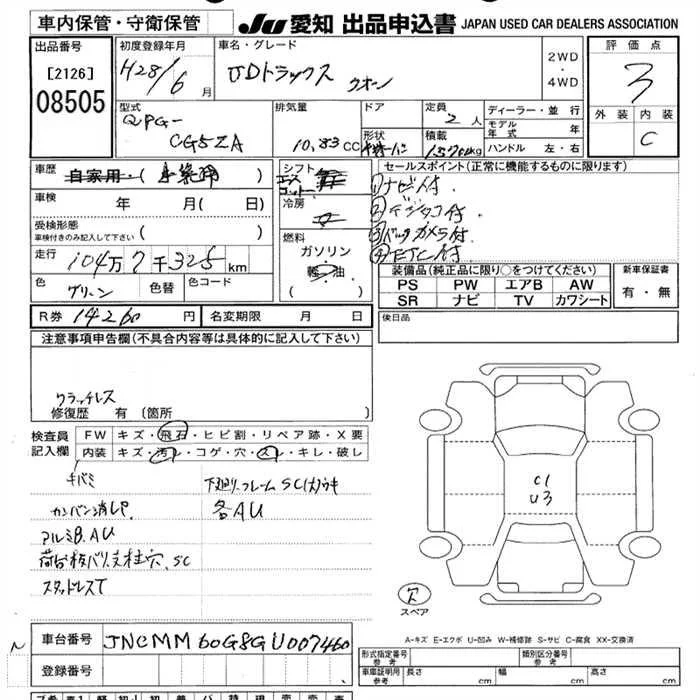 車内保管・守衛保管
JU 愛知 出品申込書 JAPAN USED CAR DEALERS ASSOCIATION
出品番号
[2126]
08505
初度登録年月
H28/6月
車名・グレード
UDトラックス クオン
2WD
・
4WD
評価点
3
外装 内装
C
型式
QPG-
CG5ZA
排気量
10.83 CC
ドア
形状
定員
2人
積載
kg
ディーラー・並行
モデル年式 年
ハンドル 左・右
車歴
自家用・( )
車検 年 月( 日)
受検形態
車検付きのみ記入して下さい ( )
走行 104万7千325km
色 グリーン 色替 色コード
R券 14260円 名変期限 月 日
シフト
冷房
燃料
ガソリン
軽油
( )
セールスポイント(正常に機能するものに限ります)
①ナビ付.
②デジタコ付.
③バックカメラ付.
④ETC付.
装備品(純正品に限り○をつけてください)
PS PW エアB AW
SR ナビ TV カワシート
新車保証書
有・無
後日品
注意事項申告欄(不具合内容等は具体的に記入して下さい)
クラッチレス
修復歴 有(箇所
検査員
記入欄
FW キズ・飛石・ヒビ割・リペア跡・X要
内装 キズ・汚レ・コゲ・穴・スレ・キレ・破レ
キバミ
カンバン消しP.
アルミB.AU
SC
スタッドレスT
下廻り.フレームSC(大)ウキ
各AU
C1
U3
欠
スペア
A-キズ E-エクボ U-凹み W-補修跡 S-サビ C-腐食 XX-交換済
N
車台番号 JNCMM60G8GU007460
登録番号
形式指定番号
参考
類別区分番号
参考
車庫証明用
参考
長さ cm 幅 cm 高さ cm